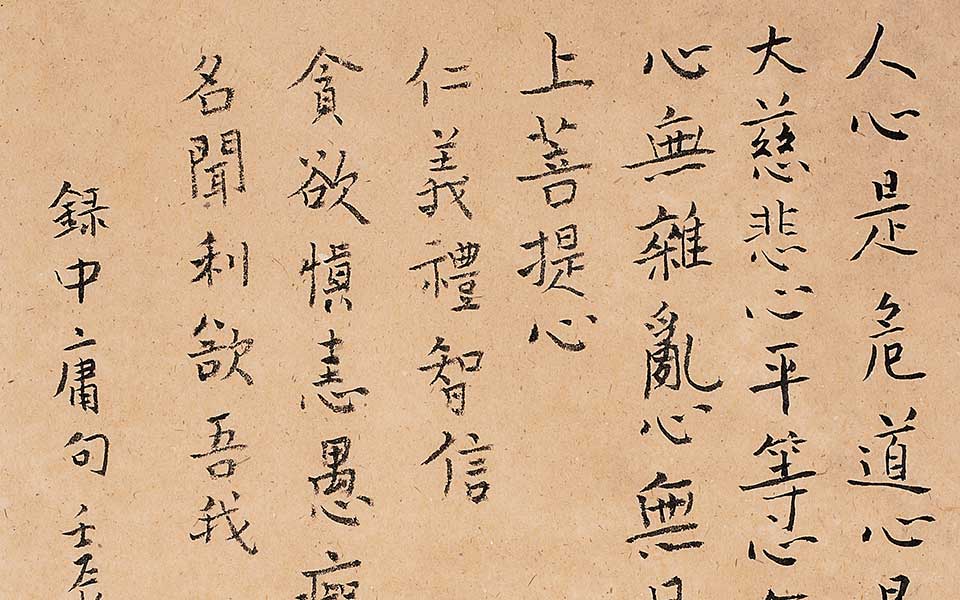 人心是危道心
大慈悲心平等心
心無雜亂心無
上菩提心
仁義禮智信
貪欲慎恚愚
名聞利欲吾我
録中庸句壬